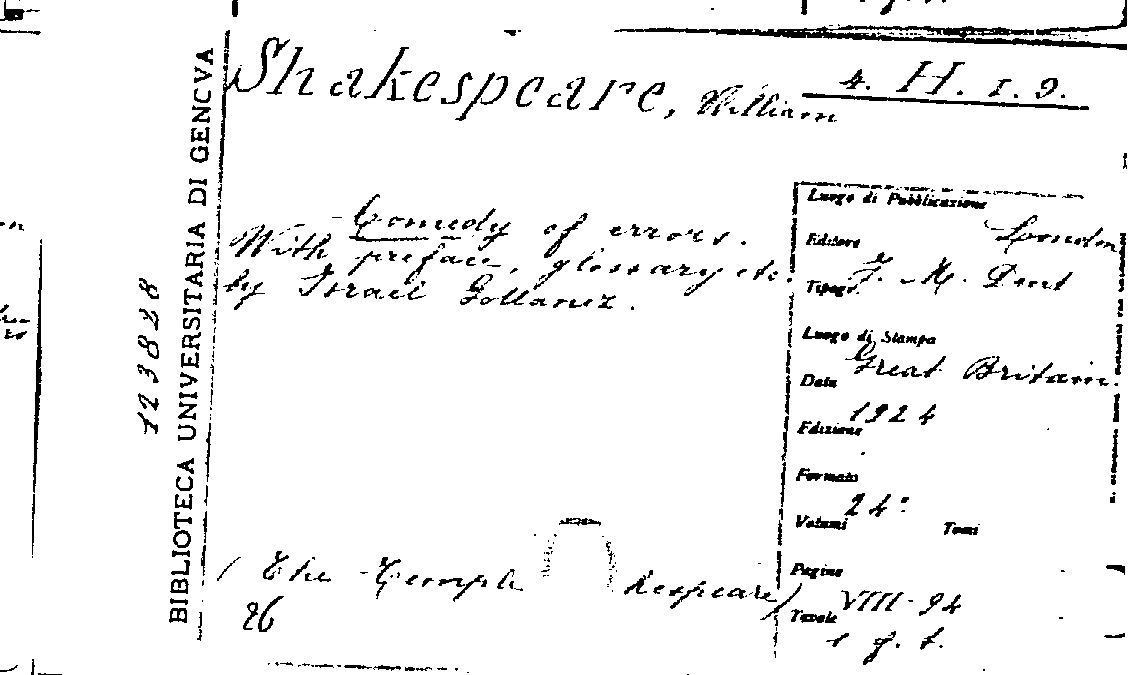 Shakespeare, William
4. H. 1. 9.
Comedy of errors.
With preface, glossary etc.
by Israel Gollancz.
(The Temple kespeare)
26
BIBLIOTECA UNIVERSITARIA DI GENOVA
123828
Luogo di Pubblicazione
London
Editore
J. M. Dent
Tipogr.
Luogo di Stampa
Great Britain.
Data
1924
Edizione
Formato
24°
Volumi Tomi
Pagine
VIII-94
Tavole
1 f. t.